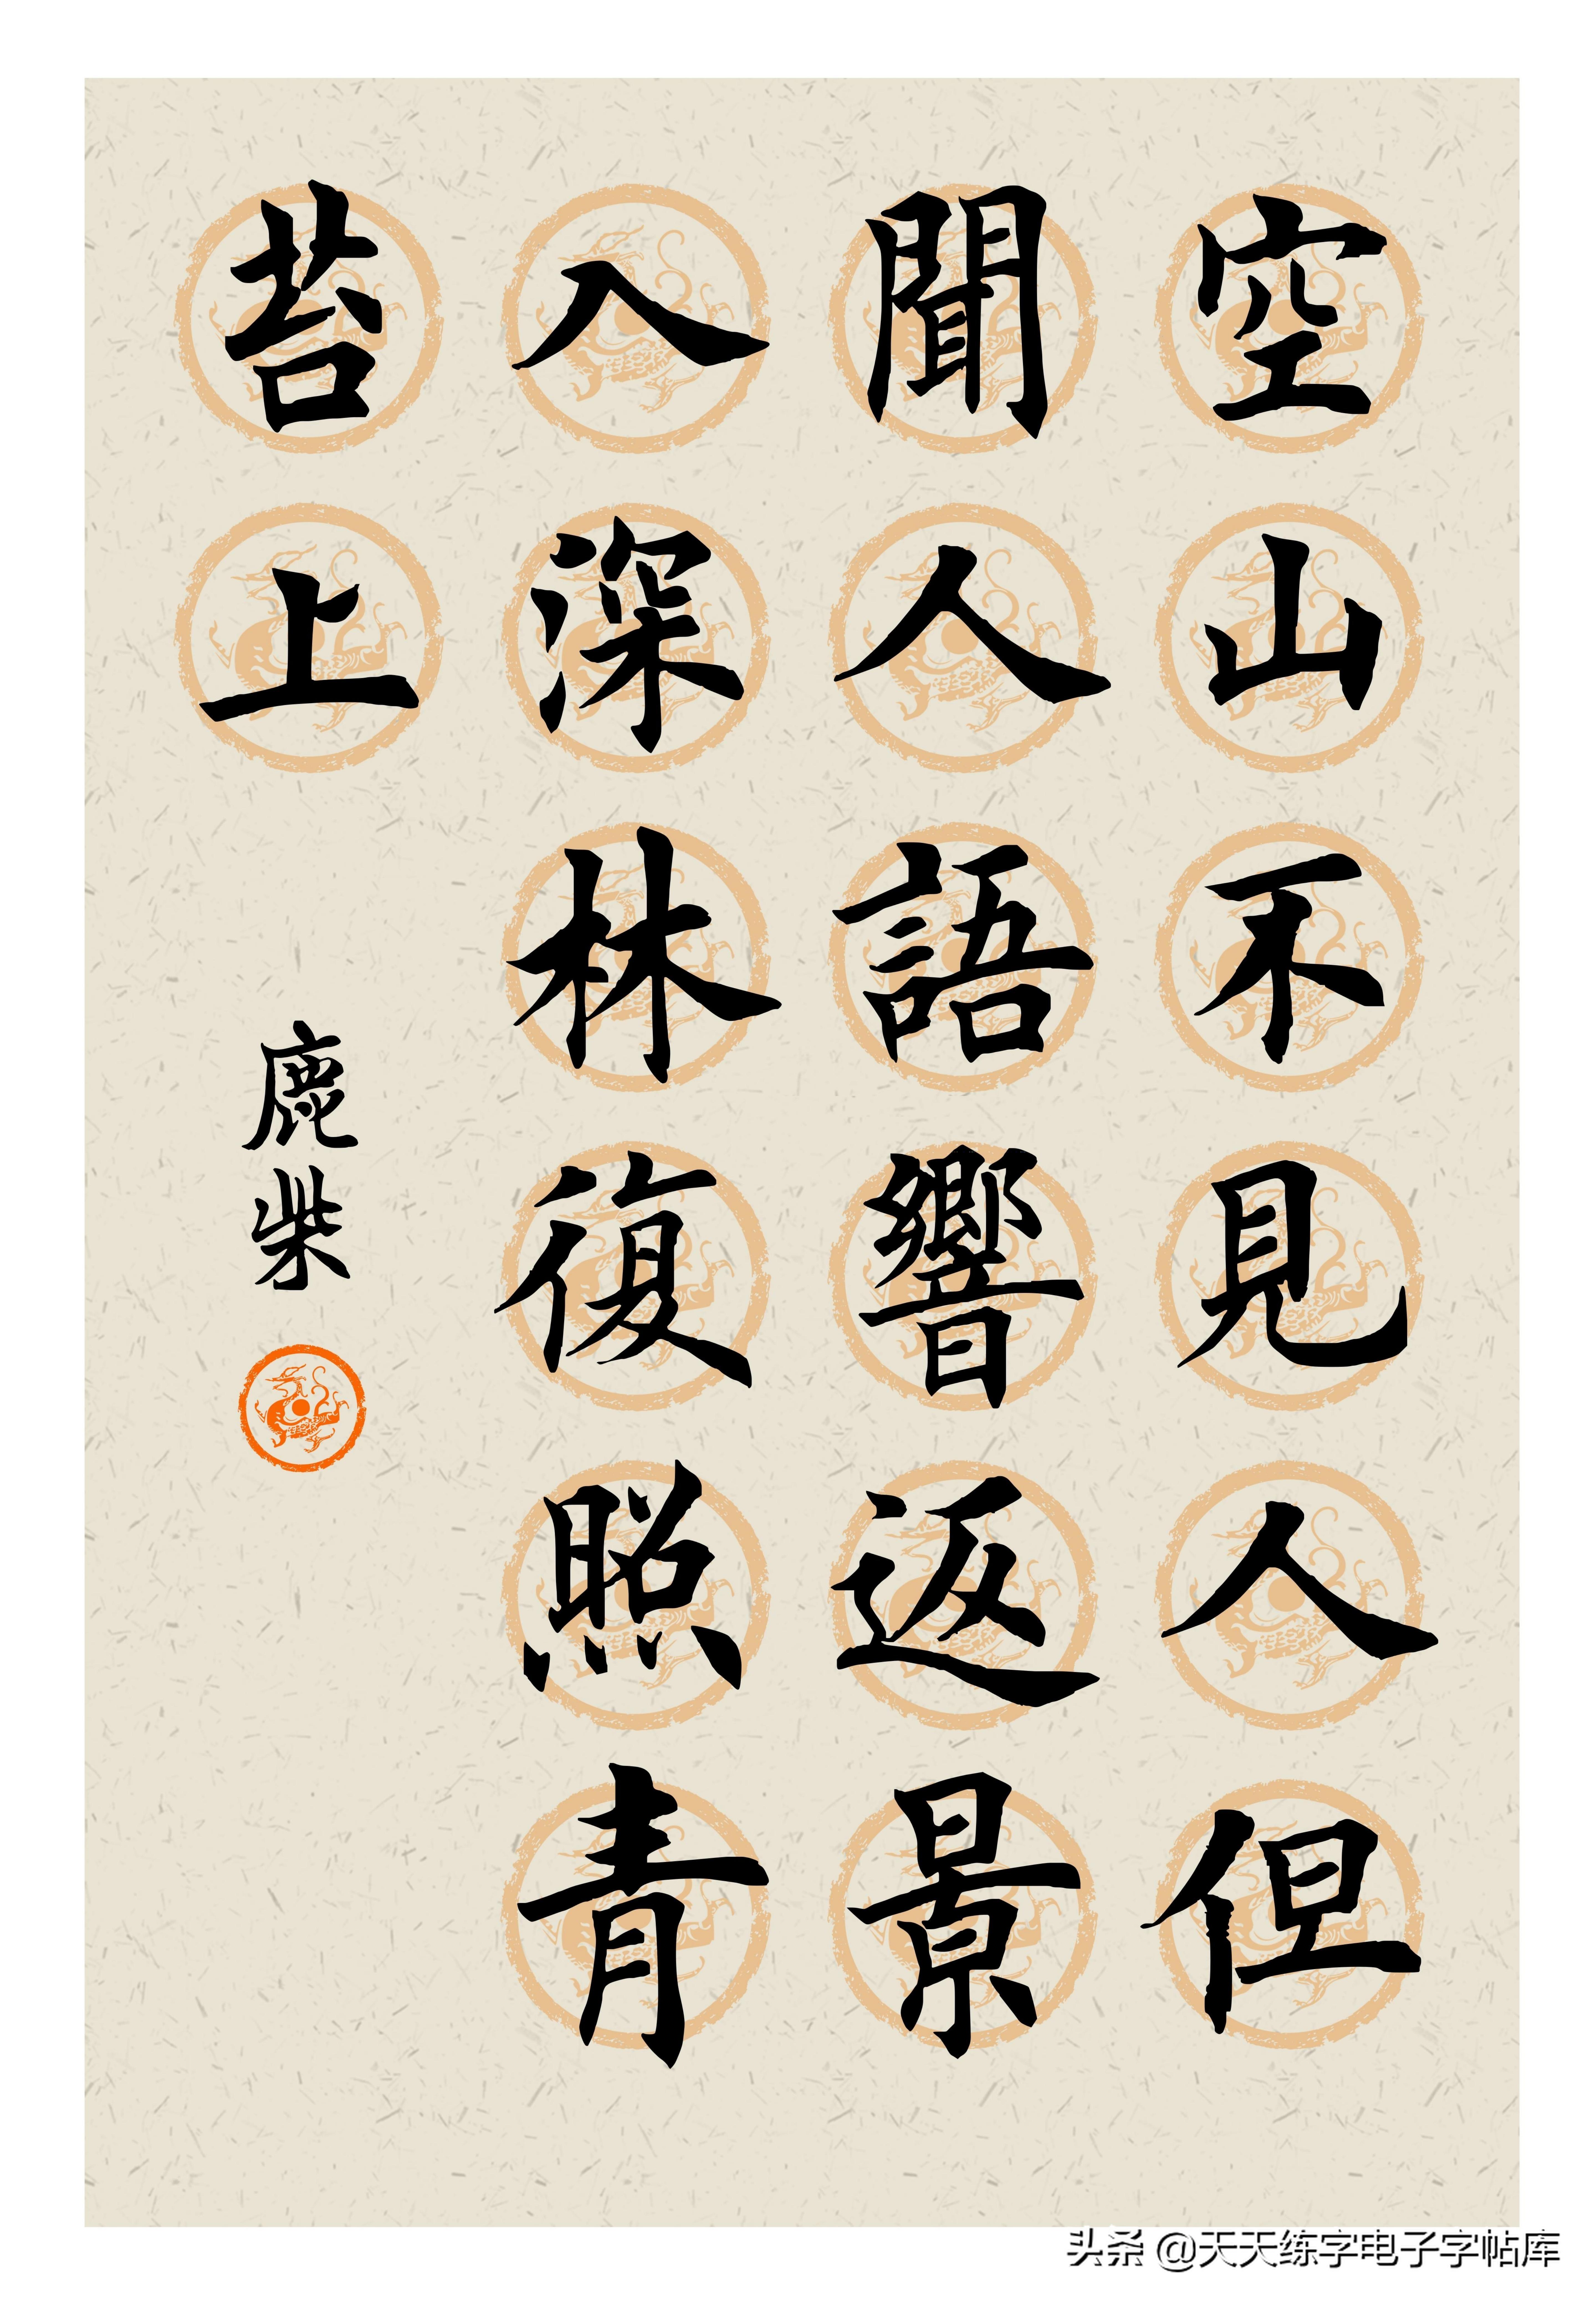 空山不見人但
聞人語響返景
入深林復照青
苔上
鹿柴
头条 @天天练字电子字帖库